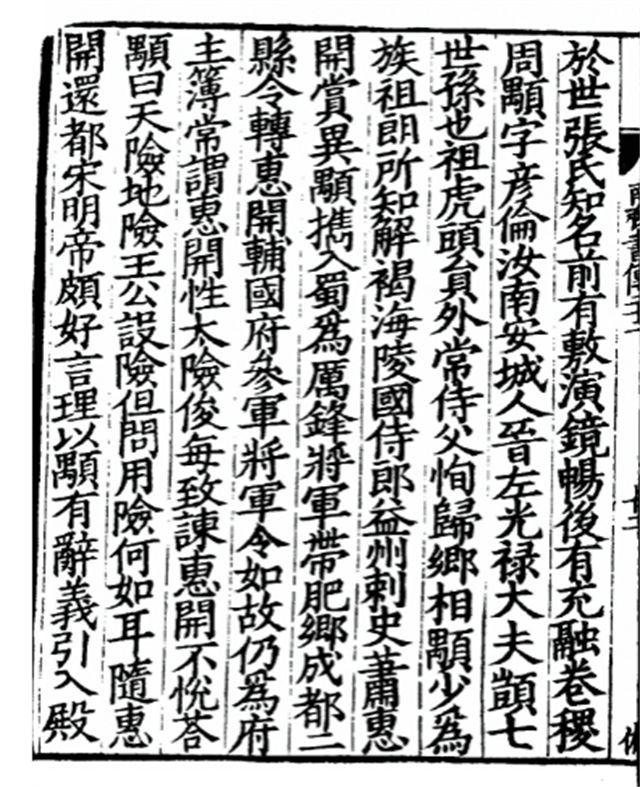 於世張氏知名前有敷演鏡暢後有充融卷稷
周顒字彥倫汝南安城人晉左光禄大夫顗七
世孫也祖虎頭負外常侍父恂歸鄉相顒少為
族祖朗所知解褐海陵國侍郎益州刺史蕭惠
開賞異顒攜入蜀為厲鋒將軍帶肥鄉成都二
縣令轉惠開輔國府參軍將軍令如故仍為府
主簿常謂惠開性太險俊每致諫惠開不悅荅
顒曰天險地險王公設險但問用險何如耳隨惠
開還都宋明帝頗好言理以顒有辭義引入殿